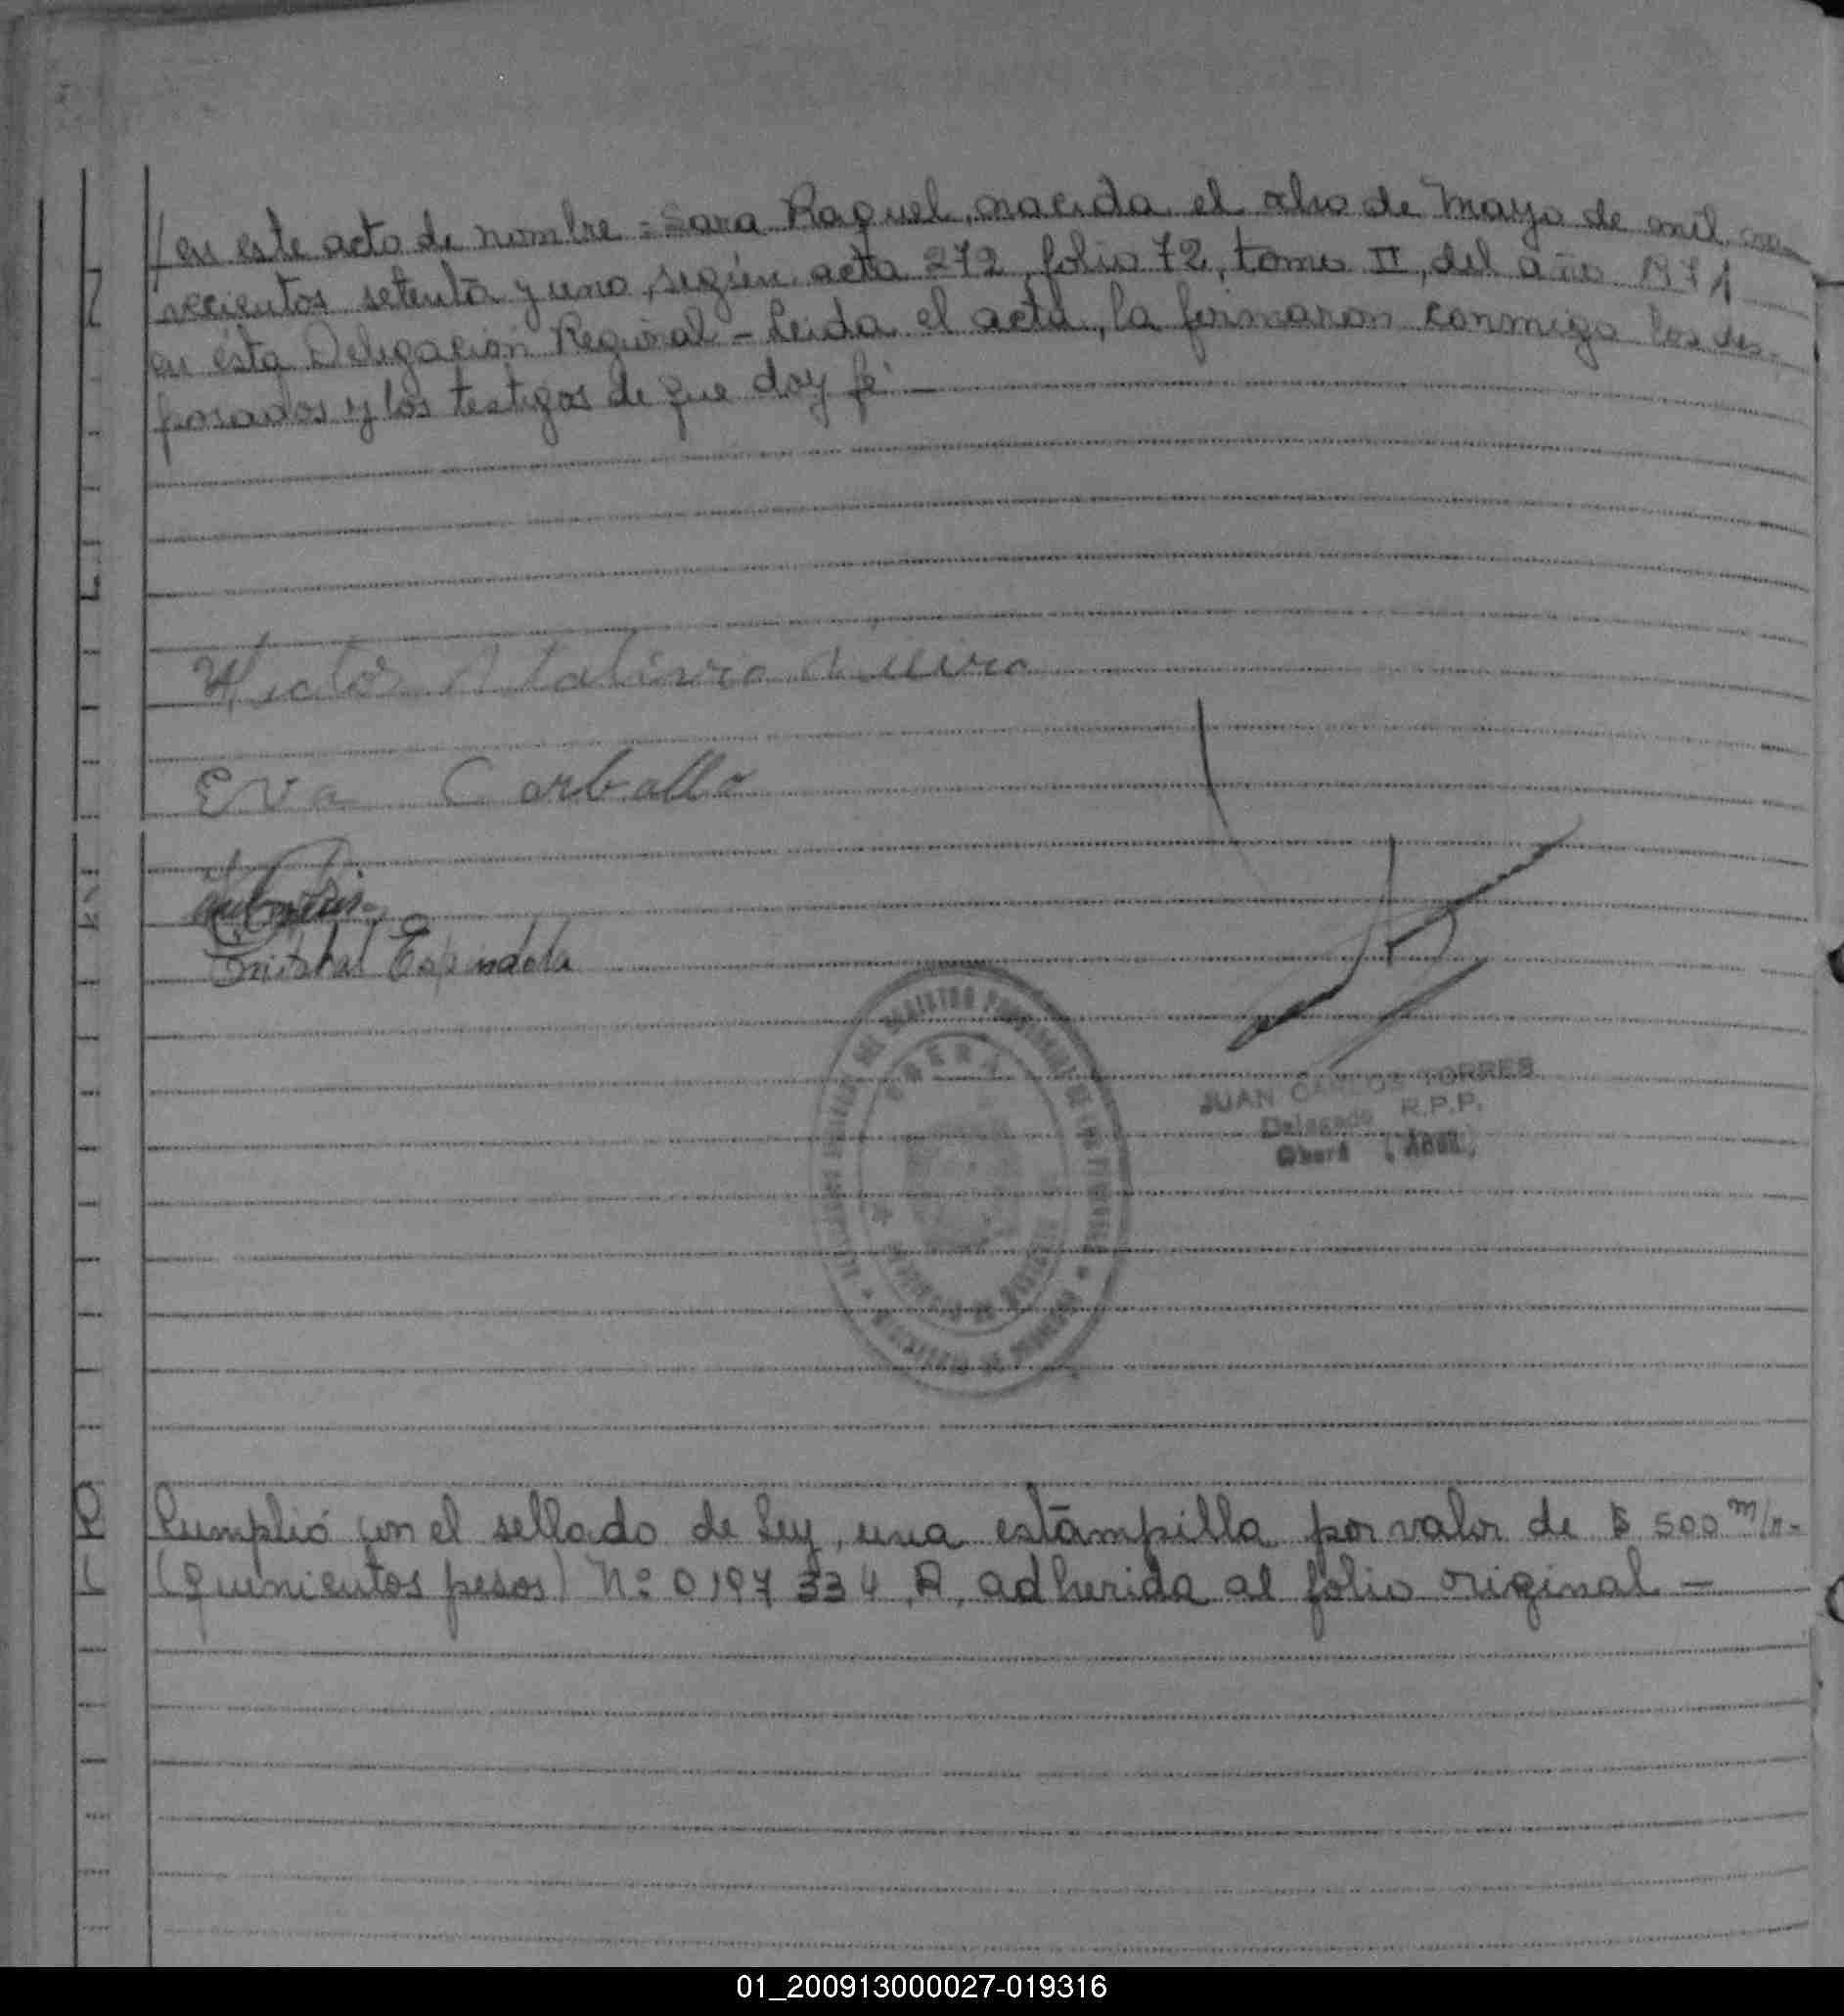 /en este acto de nombre = Sara Raquel, nacida el ocho de Mayo de mil no-
vecientos setenta y uno, según acta 272, folio 72, tomo II, del año 1971
en ésta Delegación Regional - Leida el acta, la firmaron conmigo los des-
posados y los testigos de que doy fé -
Eva Carballo
Espindola
OBERA
JUAN CARLOS TORRES
Delegado R.P.P.
Oberá
Cumplió con el sellado de Ley, una estampilla por valor de $ 500 m/n-
(quinientos pesos) Nº 0197334 A, adherida al folio original -
01_200913000027-019316